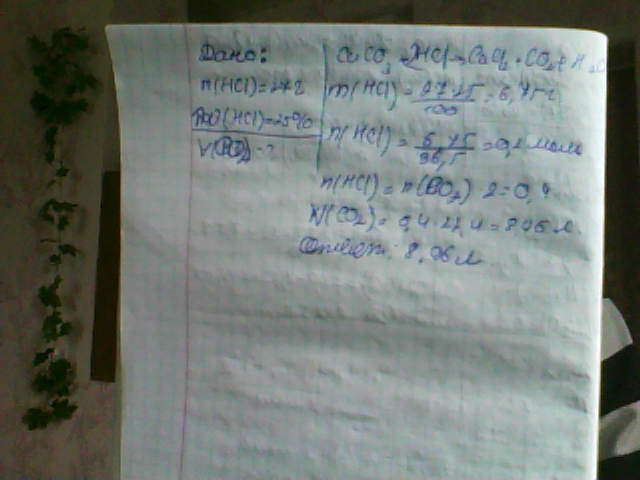 Дано:
m(HCl)=27г
(HCl)=25%
V(CO2)-?
CaCO3+2HCl→CaCl2+CO2+H2O
m(HCl)=27·25/100=6,75г
n(HCl)=6,75/36,5=0,2 моль
n(HCl)=n(CO2)·2=0,4
V(CO2)=0,4·22,4=8,96л.
Ответ: 8,96л